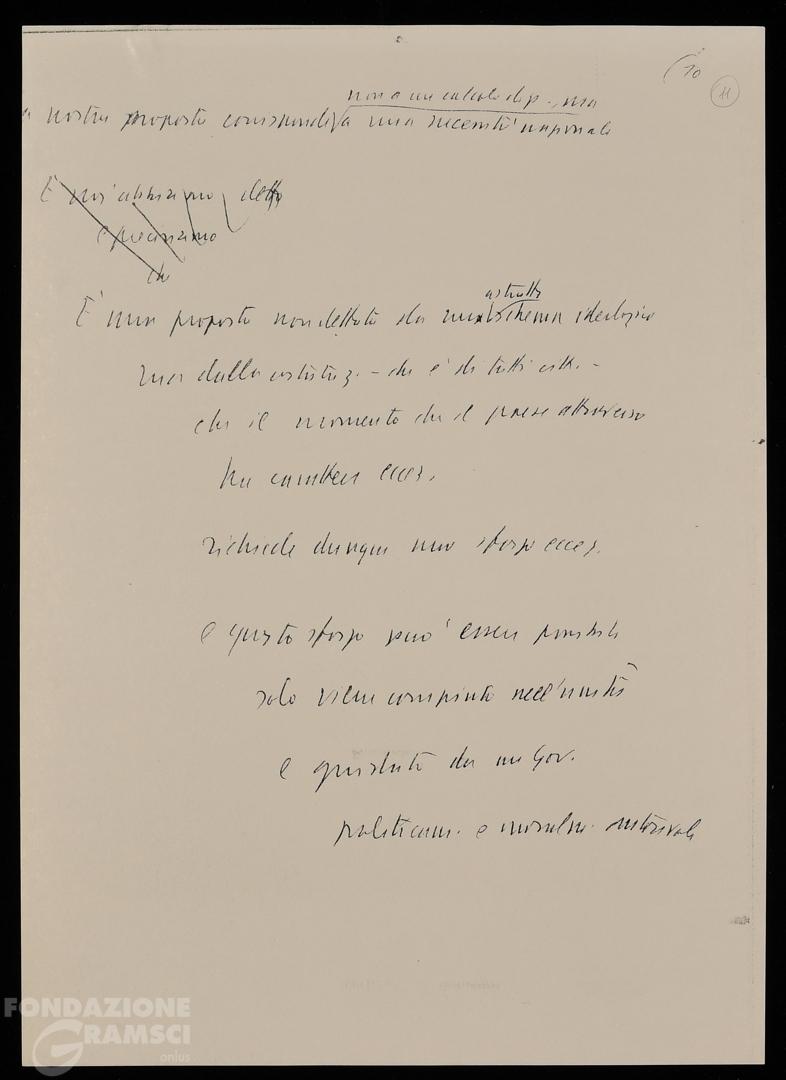 10
11
non a un calcolo di p., ma
a nostra proposta corrisponde a una necessità nazionale
E noi abbiamo detto
e precisiamo
che
astratto
E' una proposta non dettata da uno schema ideologico
ma dalla - che è di tutti -
che il momento che il paese attraversa
ha carattere ecces.
richiede dunque uno sforzo eccez.
e questo sforzo può essere possibile
solo viene compiuto nell'unità
e guidato da un Gov.
politicam. e moralm. autorevole
FONDAZIONE
GRAMSCI
onlus